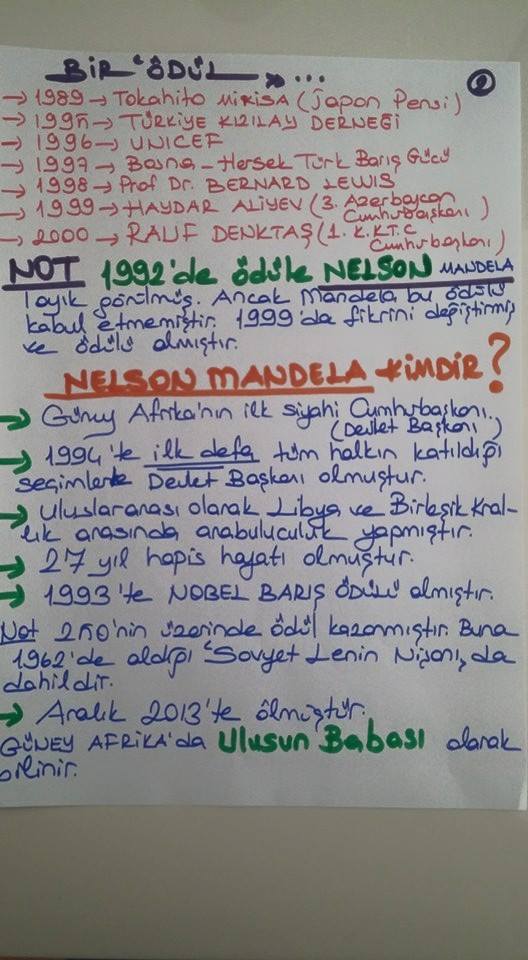 BİR ÖDÜL » ...
2
→ 1989 → Tokahito MİKİSA (Japon Pensi)
→ 1995 → TÜRKİYE KIZILAY DERNEĞİ
→ 1996 → UNICEF
→ 1997 → Bosna - Hersek Türk Barış Gücü
→ 1998 → Prof Dr. BERNARD LEWIS
→ 1999 → HAYDAR ALİYEV (3. Azerbaycan
Cumhurbaşkanı)
→ 2000 → RAUF DENKTAŞ (1. K.K.T.C
Cumhurbaşkanı)
NOT 1992'de ödüle NELSON MANDELA
layık görülmüş. Ancak Mandela bu ödülü
kabul etmemiştir. 1999'da fikrini değiştirmiş
ve ödülü almıştır.
NELSON MANDELA KİMDİR?
→ Güney Afrika'nın ilk siyahi Cumhurbaşkanı.
(Devlet Başkanı)
→ 1994'te ilk defa tüm halkın katıldığı
seçimlerle Devlet Başkanı olmuştur.
→ Uluslararası olarak Libya ve Birleşik Kral-
lık arasında arabuluculuk yapmıştır.
→ 27 yıl hapis hayatı olmuştur.
→ 1993'te NOBEL BARIŞ ÖDÜLÜ almıştır.
Not 250'nin üzerinde ödül kazanmıştır. Buna
1962'de aldığı "Sovyet Lenin Nişanı, da
dahildir.
→ Aralık 2013'te ölmüştür.
GÜNEY AFRİKA'da Ulusun Babası olarak
bilinir.